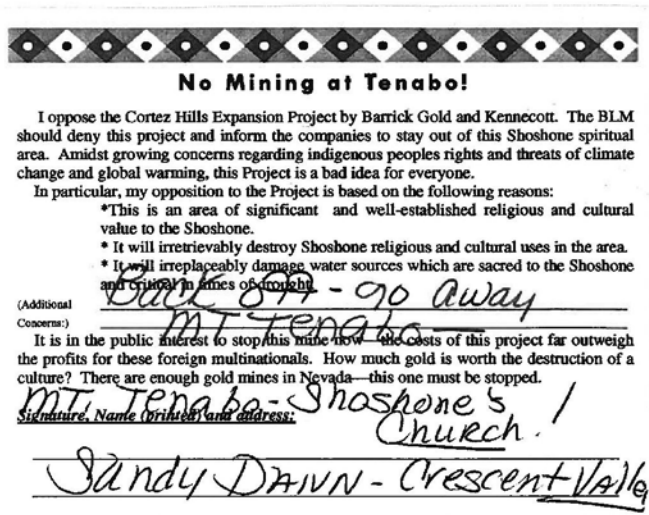 No Mining at Tenabo!
I oppose the Cortez Hills Expansion Project by Barrick Gold and Kennecott. The BLM
should deny this project and inform the companies to stay out of this Shoshone spiritual
area. Amidst growing concerns regarding indigenous peoples rights and threats of climate
change and global warming, this Project is a bad idea for everyone.
In particular, my opposition to the Project is based on the following reasons:
*This is an area of significant and well-established religious and cultural
value to the Shoshone.
* It will irretrievably destroy Shoshone religious and cultural uses in the area.
* It will irreplaceably damage water sources which are sacred to the Shoshone
and critical in times of drought.
Back off - go away
(Additional
Concerns:)
MT Tenabo —
It is in the public interest to stop this mine now—the costs of this project far outweigh
the profits for these foreign multinationals. How much gold is worth the destruction of a
culture? There are enough gold mines in Nevada—this one must be stopped.
MT. Tenabo - Shoshone's /
Signature, Name (printed) and address:
Church.
Sandy DANN - Crescent Valle